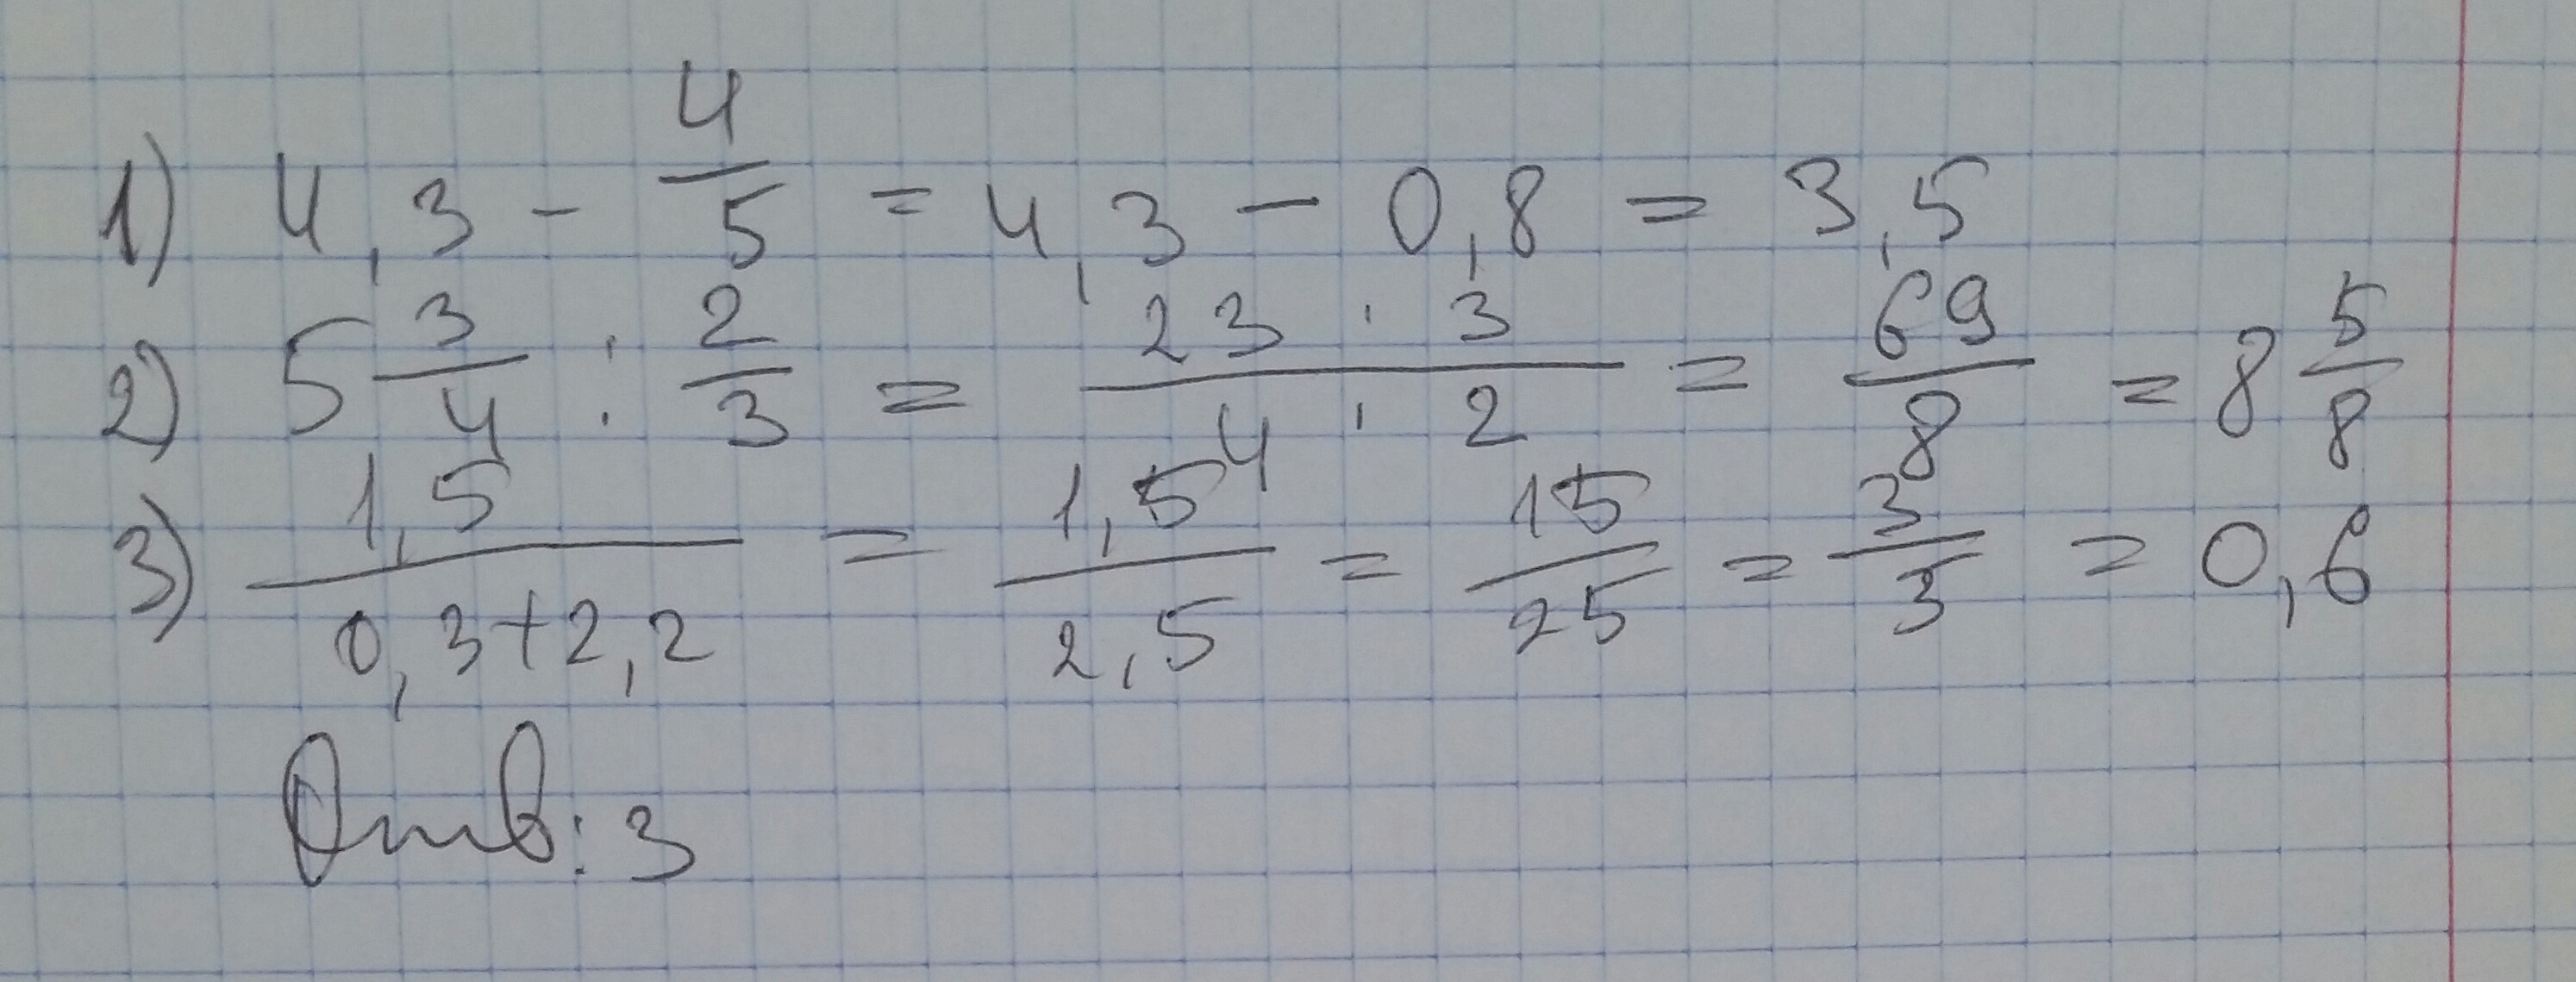 1) 4,3 - 4/5 = 4,3 - 0,8 = 3,5
2) 5 3/4 : 2/3 = 23 · 3 / 4 · 2 = 69/8 = 8 5/8
3) 1,5 / 0,3+2,2 = 1,5/2,5 = 15/25 = 3/3 = 0,6
Отв: 3